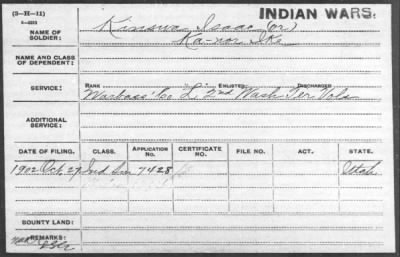 (3-II-11)
INDIAN WARS.
NAME OF SOLDIER: Kinswa, Isaac (or)
NAME AND CLASS OF DEPENDENT:
RANK ENLISTED DISCHARGED
SERVICE: Warbass' Co. L, 2nd Wash Ter Vols
ADDITIONAL SERVICE:
DATE OF FILING. CLASS. APPLICATION NO. CERTIFICATE NO. FILE NO. ACT. STATE.
1902 Oct. 27 Ind Sur 7428
BOUNTY LAND:
REMARKS: